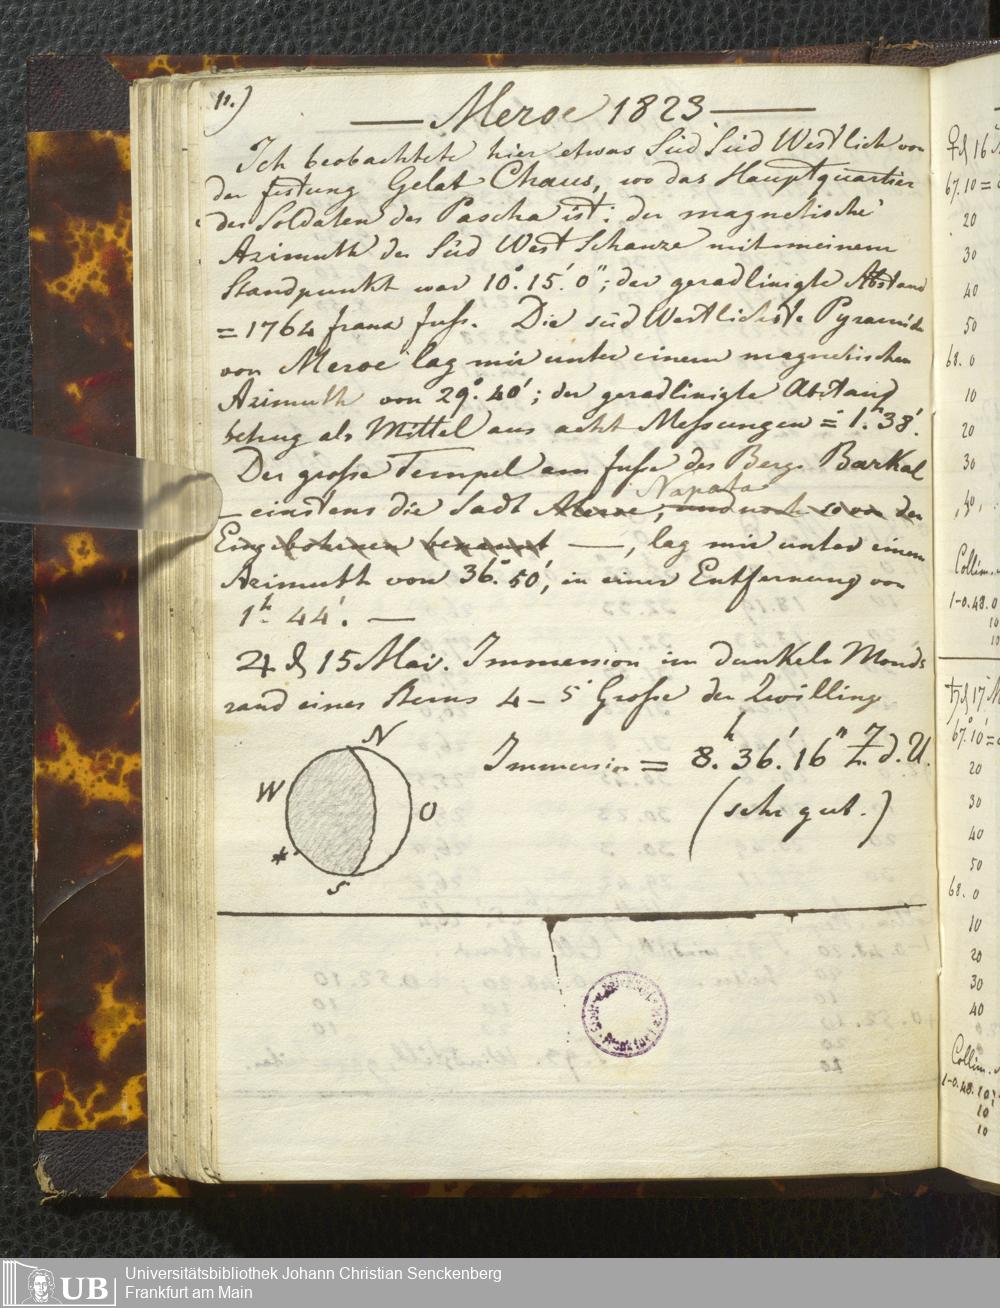 11.)
— Meroe 1823. —
Ich beobachtete hier etwas Süd Süd Westlich von
der festung Gelat Chaus, wo das Hauptquartier
der Soldaten des Pascha ist: der magnetische
Azimuth der Süd West Schanze mit meinem
Standpunkt war 10°. 15.' 0"; der geradlinigte Abstand
= 1764 franz fuss. Die süd Westlichste Pyramide
von Meroe lag mir unter einem magnetischen
Azimuth von 29°. 40'; der geradlinigte Abstand
betrug als Mittel aus acht Messungen = 1.h 38'.
Der grosse Tempel am fusse des Bergs Barkal
Napata
— einstens die Sadt Meroe, und noch so von den
Eingebohrnen benannt —, lag mir unter einem
Azimuth von 36°. 50', in einer Entfernung von
1h. 44'. —
♃ d 15 Mai. Immersion im dunkeln Monds
rand eines Sterns 4 – 5 Grosse der Zwilling
N
W
O
*
S
Immersion = 8.h 36.' 16" Z. d. U.
(sehr gut.)
♀ d 16
67. 10 =
20
30
40
50
68. 0
10
20
30
40
Collim.
1-0.48.0
10
10
♄ d 17
67°. 10' =
20
30
40
50
68. 0
10
20
30
40
Collim.
1-0.48.10
10
10
UB
Universitätsbibliothek Johann Christian Senckenberg
Frankfurt am Main